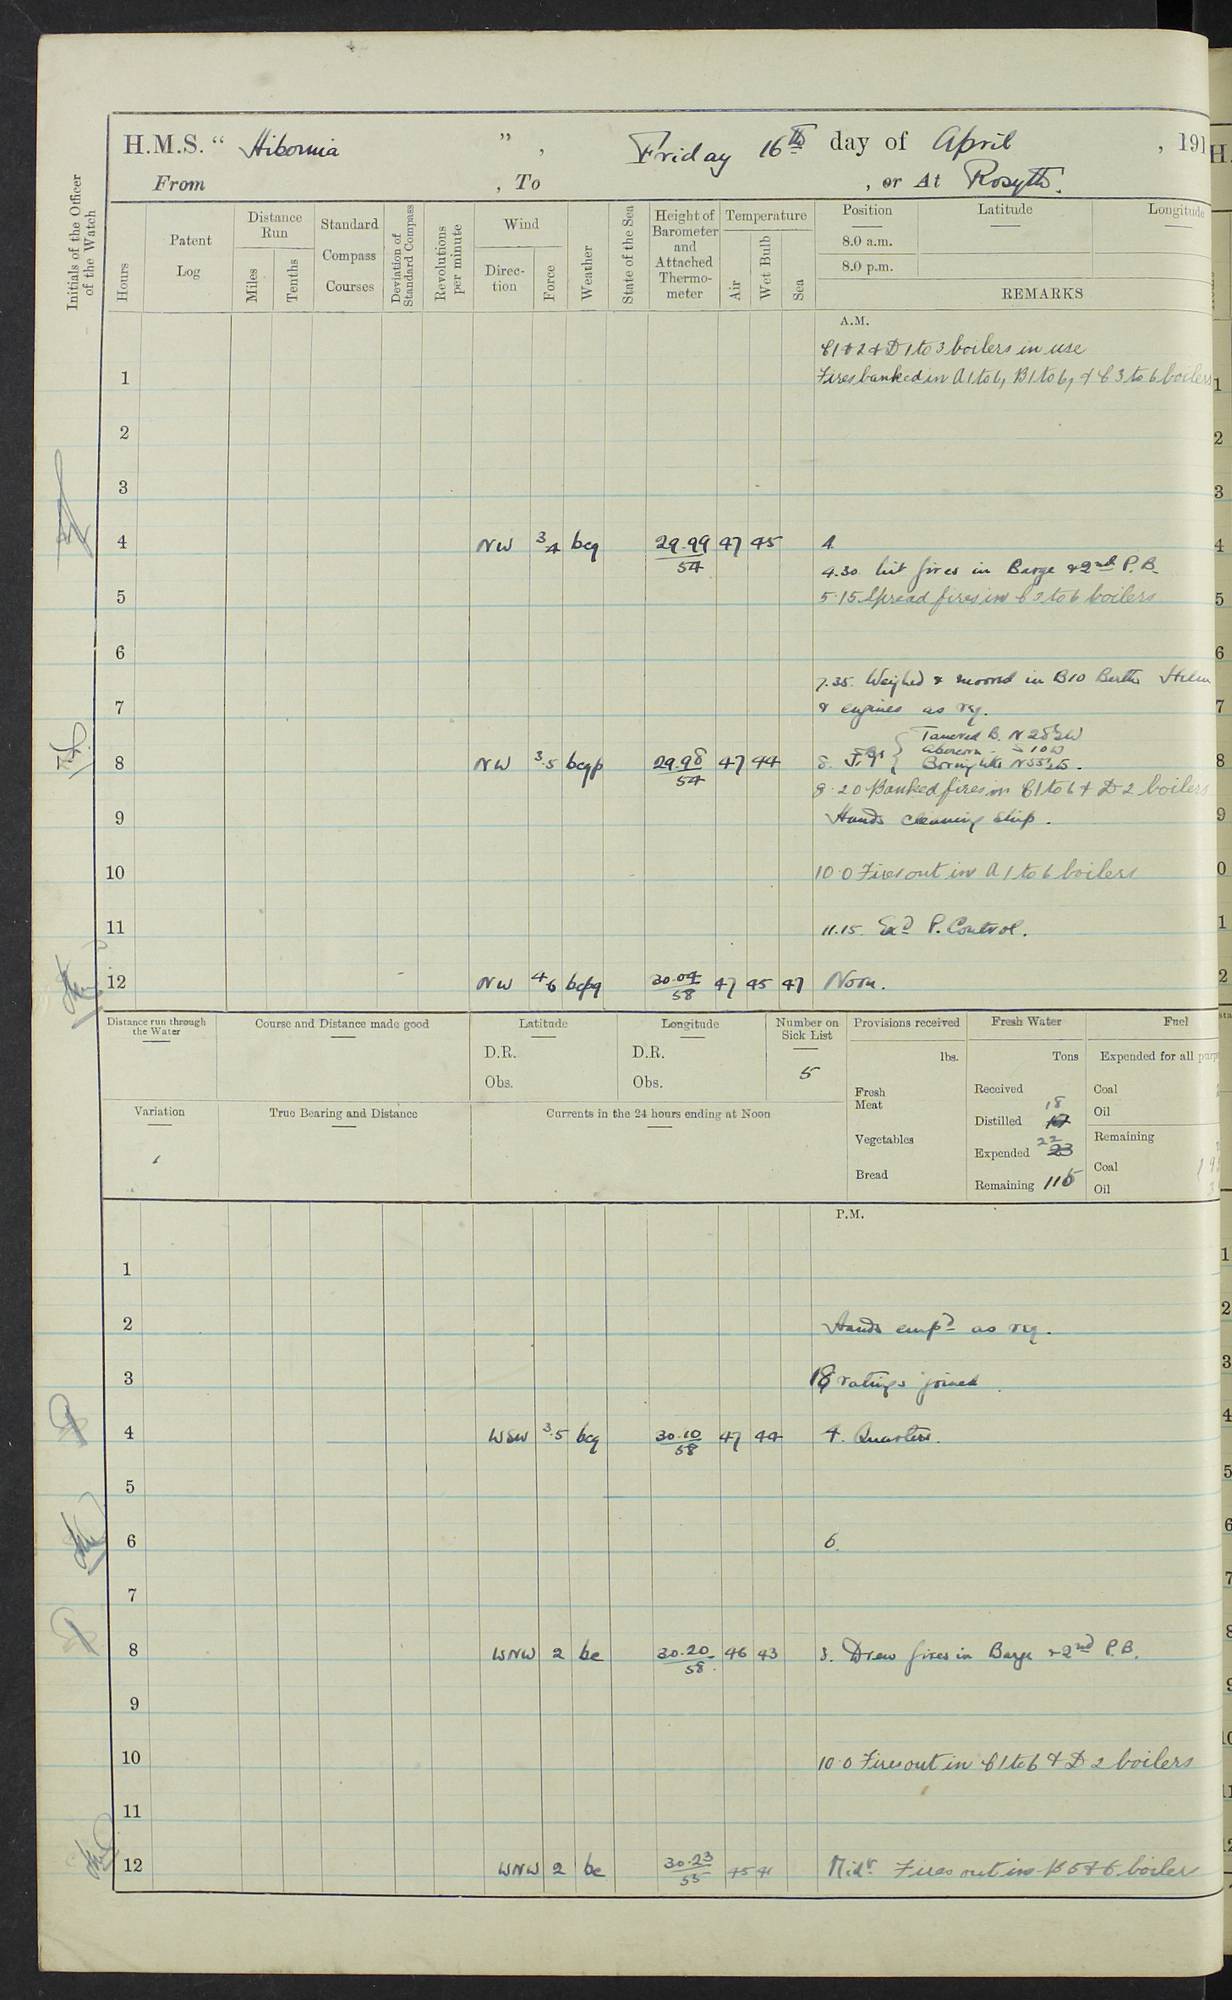 H.M.S. “ Hibernia ” , Friday 16th day of April , 191
From , To , or At Rosyth.
Initials of the Officer of the Watch
Hours
Patent Log
Distance Run
Miles
Tenths
Standard Compass Courses
Deviation of Standard Compass
Revolutions per minute
Wind
Direc-tion
Force
Weather
State of the Sea
Height of Barometer and Attached Thermo-meter
Temperature
Air
Wet Bulb
Sea
Position
8.0 a.m.
8.0 p.m.
Latitude
Longitude
REMARKS
A.M.
C1 & 2 & D 1 to 3 boilers in use
1 Fires banked in A 1 to 6, B 1 to 6, & C 3 to 6 boilers
2
3
4 NW 3-4 bcq 29.99/54 47 45 4.
4.30. Lit fires in Barge & 2nd P.B.
5 5.15 Spread fires in C 3 to 6 boilers
6
7.35. Weighed & moored in B10 Berth
7 & engines as req.
N 28½W
10W
8 NW 3.5 bcqp 29.98/54 47 44 8.
8.20 Banked fires in C1 to 6 & D 2 boilers
9 Hands cleaning ship.
10 10.0 Fires out in A 1 to 6 boilers
11 11.15. Exd P. Control.
12 NW 4-6 bcpq 30.04/58 47 45 47 Noon.
Distance run through the Water
Course and Distance made good
Latitude
D.R.
Obs.
Longitude
D.R.
Obs.
Number on Sick List
5
Provisions received
lbs.
Fresh Meat
Vegetables
Bread
Fresh Water
Tons
Received
Distilled 18
Expended 22
Remaining 115
Fuel
Expended for all
Coal
Oil
Remaining
Coal
Oil
Variation
True Bearing and Distance
Currents in the 24 hours ending at Noon
P.M.
1
2 Hands empd as req.
3 18 ratings joined
4 WSW 3.5 bcq 30.10/58 47 44 4. Quarters.
5
6 6.
7
8 WNW 2 bc 30.20/58 46 43 8. Drew fires in Barge & 2nd P.B.
9
10 10.0 Fires out in C 1 to 6 & D 2 boilers
11
12 WNW 2 bc 30.23/55 45 41 Midt. Fires out in B 5 & 6 boilers